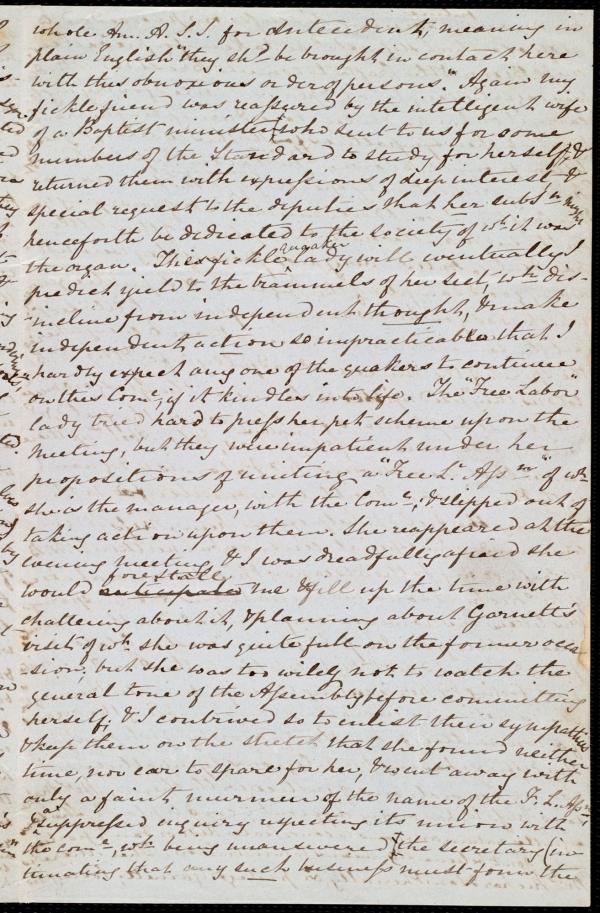 whole Am. A. S. S. for Antecedent, meaning in
plain English "they shd. be brought in contact here
with this obnoxious order of persons." Again my
fickle friend was reassured by the intelligent wife
of a Baptist minister, who sent to us for some
numbers of the Standard to study for herself, &
returned them with expressions of deep interest &
special request to the deputies that her subsn. might
henceforth be dedicated to the society of wh. it was
the organ. This fickle quaker lady will eventually I
predict yield to the trammels of her sect, wh. dis-
incline from independent thought, & make
independent action so impracticable that I
hardly expect any one of the quakers to continue
on this Come., if it kindles into life. The "Free Labor"
lady tried hard to press her pet scheme upon the
Meeting, but they were impatient under her
propositions of uniting a "Free L. Assn." of wh.
she is the manager, with the Come., & slipped out of
taking action upon them. She reappeared at the
evening meeting & I was dreadfully afraid she
would anticipate forestall me & fill up the time with
chattering about it, & planning about Garnett's
visit of wh. she was quite full on the former occa
-sion; but she was too wily not to watch the
general tone of the Assembly before committing
herself, & I contrived so to enlist their sympathies
& keep them on the stretch that she found neither
time, nor ear to spare for her, & went away with
only a faint murmur of the name of the F. L. Assn.
& a suppressed inquiry respecting its union with
the come., wh. being unanswered, the secretary (in
timating that any such business must form the